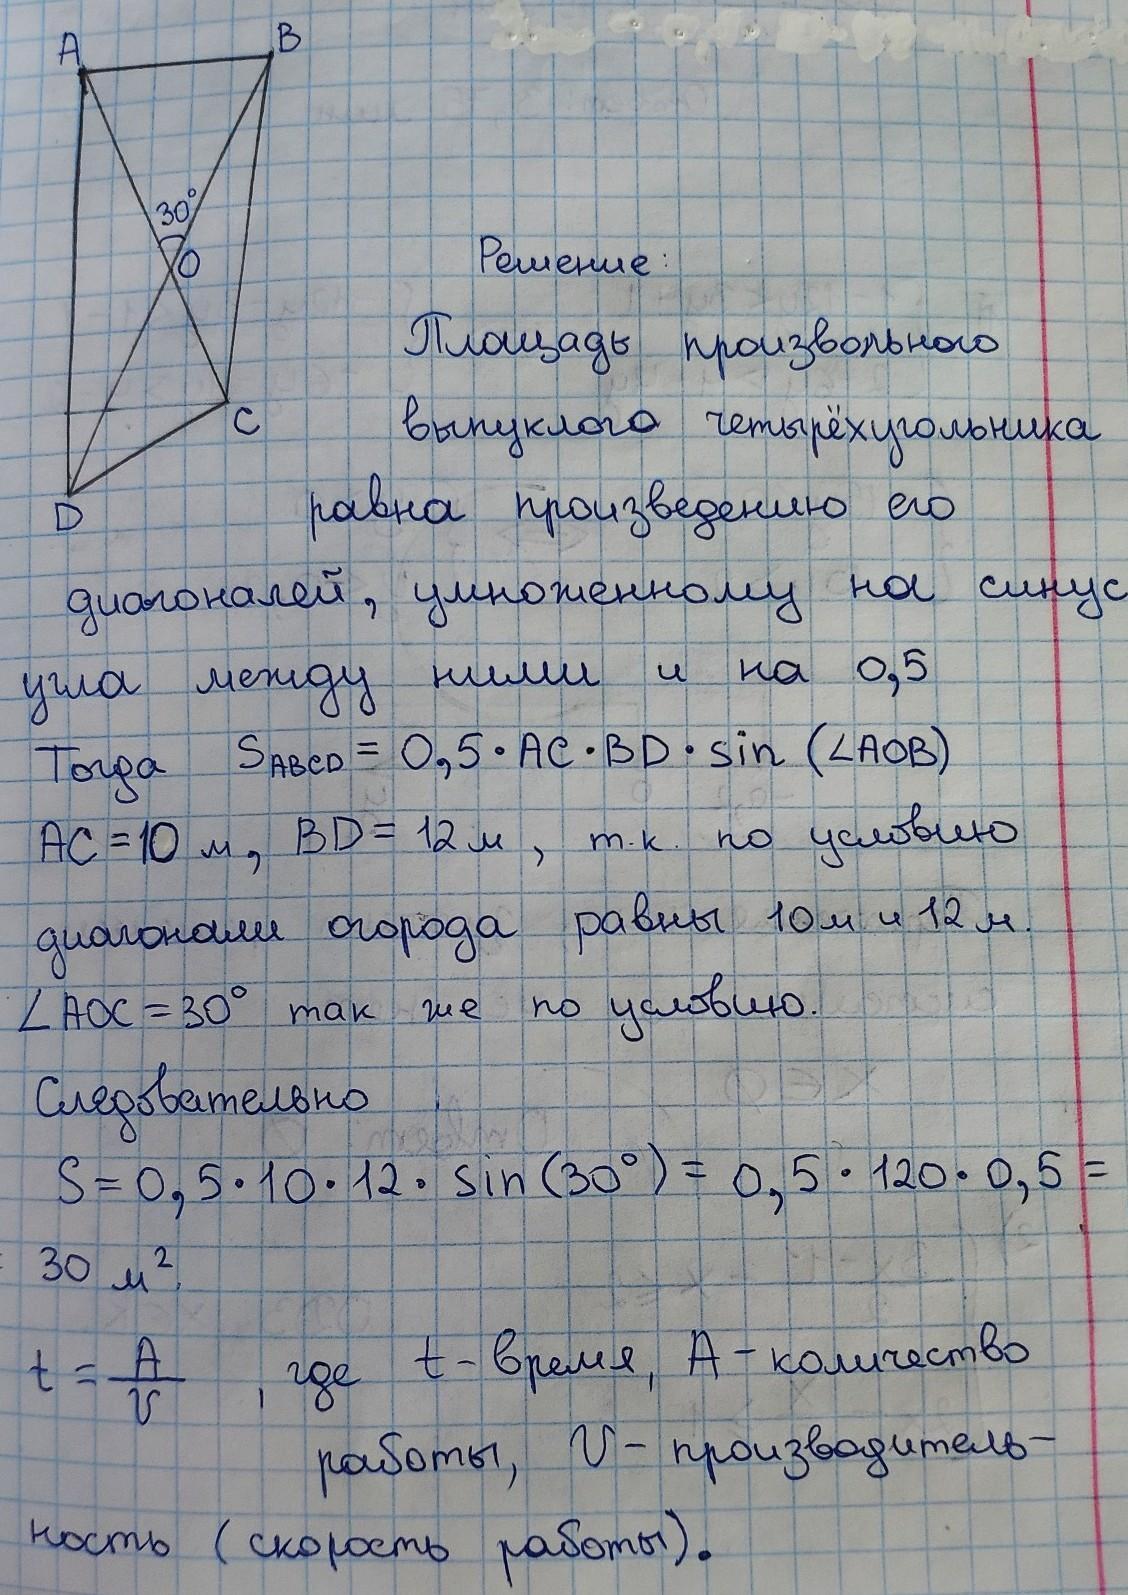 A B
30°
O
C
D
Решение:
Площадь произвольного
выпуклого четырёхугольника
равна произведению его
диагоналей, умноженному на синус
угла между ними и на 0,5
Тогда S_ABCD = 0,5·AC·BD·sin (∠AOB)
AC=10 м, BD=12м, т.к. по условию
диагонали огорода равны 10м и 12м.
∠AOC=30° так же по условию.
Следовательно
S=0,5·10·12·sin(30°)=0,5·120·0,5=
= 30 м².
t = A/V, где t-время, A-количество
работы, V-производитель-
ность (скорость работы).